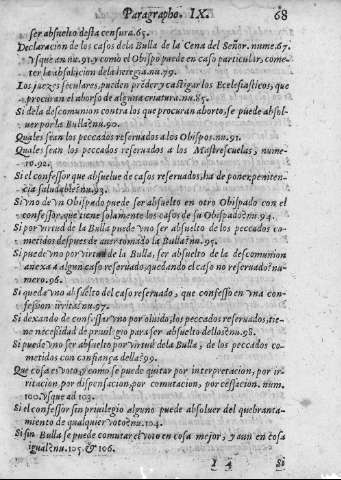 Paragrapho. IX. 68
ser absuelto desta censura.65.
Declaracion de los casos dela Bulla de la Cena del Señor. nume.67.
Y sque an nu.91. y como el Obispo puede en caso particular, come-
ter la absolucion dela heregia. nu.79.
Los juezes seculares, pueden prẽder, y castigar los Ecclesiasticos, que
procuran el aborso de alguna criatura. nu.85.
Si dela descomunion contra los que procuran aborto, se puede absol-
uer por la Bulla? nu.90.
Quales sean los peccados reseruados a los Obispos. nu.91.
Quales sean los peccados reseruados a los Mastrescuelas, nume-
ro.92.
Si el confessor que absuelue de casos reseruados, ha de poner, peniten-
cia saludable? nu.93.
Si vno de vn Obispado puede ser absuelto en otro Obispado con el
confessor, que tiene solamente los casos de su Obispado? nu.94.
Si por virtud de la Bulla puede vno ser absuelto de los peccados co-
metidos despues de auer tomado la Bulla? nu.95.
Si puede vno por virtud de la Bulla, ser absuelto de la descomunion
anexa a algun caso reseruado, quedando el caso no reseruado? nu-
mero.96.
Si queda vno absuelto del caso reseruado, que confesso en vna con-
fession nu.97.
Si dexando de confessar vno por oluido, los peccados reseruados, tie-
ne necesidad de priuilegio para ser absuelto dellos? nu.98.
Si puede vno ser absuelto por virtud dela Bulla, de los peccados co-
metidos con confiança della? 99.
Que cosa es voto, y como se puede quitar por interpretacion, por ir-
ritacion, por dispensacion, por comutacion, por cessacion. num.
100. vsque ad 103.
Si el confessor sin priuilegio alguno puede absoluer del quebranta-
miento de qualquier voto? nu.104.
Si sin Bulla se puede comutar el voto en cosa mejor, y aun en cosa
igual? nu.105. & 106.
I 4 Si